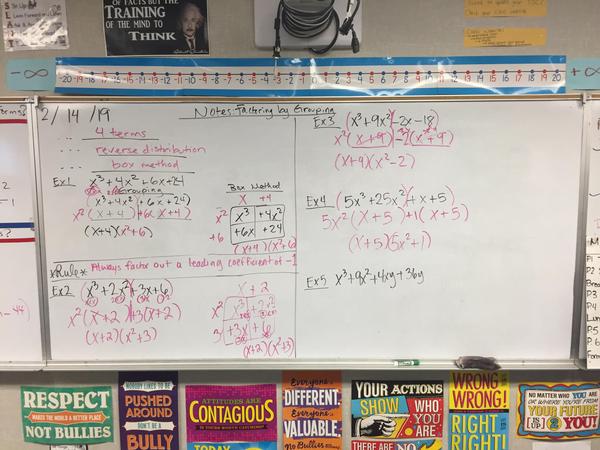 OF FACTS BUT THE
TRAINING
OF THE MIND TO
THINK
-∞
-20 -19 -18 -17 -16 -15 -14 -13 -12 -11 -10 -9 -8 -7 -6 -5 -4 -3 -2 -1 0 1 2 3 4 5 6 7 8 9 10 11 12 13 14 15 16 17 18 19 20
+∞
2/14/19
Notes: Factoring by Grouping
4 terms
reverse distribution
box method
Ex1 x³+4x²+6x+24
Grouping
(x³+4x²)(+6x+24)
x²(x+4)+6(x+4)
(x+4)(x²+6)
Box Method
x +4
x² x³ +4x²
+6 +6x +24
(x+4)(x²+6)
*Rule* Always factor out a leading coefficient of -1
Ex2 (x³+2x²)(+3x+6)
x²(x+2)+3(x+2)
(x+2)(x²+3)
x + 2
x² x³ +2x²
3 +3x +6
(x+2)(x²+3)
Ex3 (x³+9x²)(-2x-18)
x²(x+9)-2(x+9)
(x+9)(x²-2)
Ex4 (5x³+25x²)(+x+5)
5x²(x+5)+1(x+5)
(x+5)(5x²+1)
Ex5 x³+9x²+4xy+36y
RESPECT
MAKES THE WORLD A BETTER PLACE
NOT BULLIES
NOBODY LIKES TO BE
PUSHED
AROUND
DON'T BE A
BULLY
ATTITUDES ARE
CONTAGIOUS
TODAY
Everyone is
DIFFERENT.
Everyone is
VALUABLE.
No Bullies
YOUR ACTIONS
SHOW WHO
YOU ARE
THERE ARE NO
WRONG IS
WRONG!
RIGHT IS
RIGHT!
NO MATTER WHO YOU ARE
OR WHERE YOU'RE FROM
YOUR FUTURE
IS UP 2 YOU!